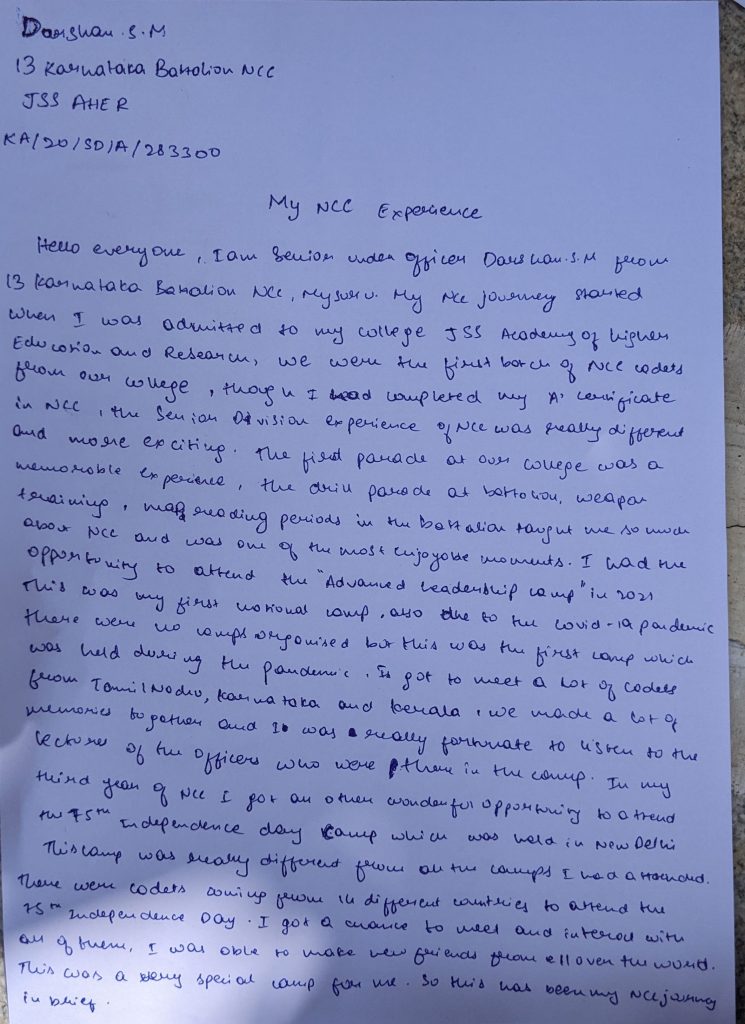 Darshan.S.M
13 Karnataka Battalion NCC
JSS AHER
KA/20/SD/A/283300
My NCC Experience
Hello everyone, I am Senior under officer Darshan.S.M from
13 Karnataka Battalion NCC, Mysuru. My Ncc journey started
when I was admitted to my college JSS Academy of higher
Education and Research, we were the first batch of NCC cadets
from our college, though I had completed my 'A' certificate
in NCC, the Senior Division experience of NCC was really different
and more exciting. The first parade at our college was a
memorable experience, the drill parade at battalion, weapon
training, map reading periods in the battalion taught me so much
about NCC and was one of the most enjoyable moments. I had the
opportunity to attend the "Advanced leadership camp" in 2021
This was my first national camp, also due to the covid-19 pandemic
there were no camps organised but this was the first camp which
was held during the pandemic. I got to meet a lot of cadets
from Tamil Nadu, Karnataka and Kerala, we made a lot of
memories together and I was really fortunate to listen to the
lectures of the officers who were there in the camp. In my
third year of NCC I got an other wonderful opportunity to attend
the 75th Independence day camp which was held in New Delhi
This camp was really different from all the camps I had attended.
There were cadets coming from 14 different countries to attend the
75th Independence Day. I got a chance to meet and interact with
all of them, I was able to make new friends from all over the world.
This was a very special camp for me. So this has been my NCC journey
in brief.